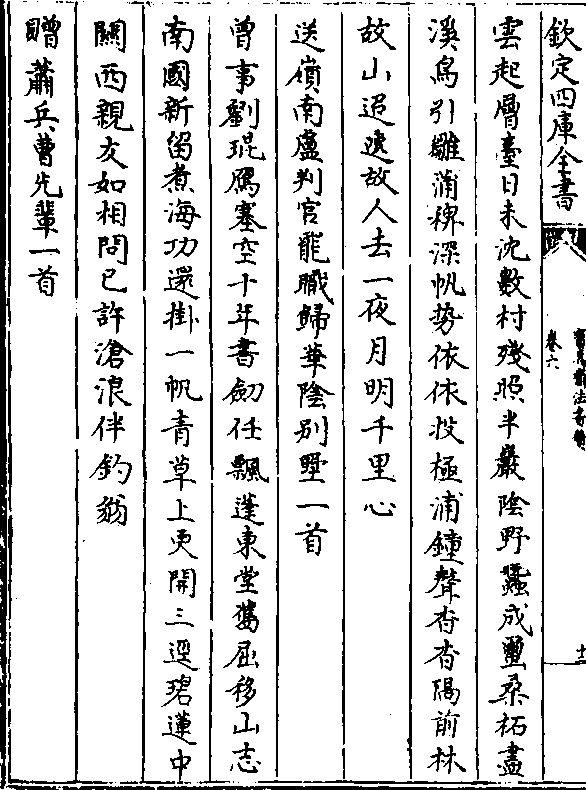 欽定四庫全書
卷六
十
雲起層臺日未沈數村殘照半巖陰野蠶成蠒桑柘盡
溪鳥引雛蒲稗深帆勢依依投極浦鐘聲杳杳隔前林
故山迢遞故人去一夜月明千里心
送嶺南盧判官罷職歸華陰别墅一首
曾事劉琨鴈塞空十年書劒任飄蓬東堂舊屈移山志
南國新留煮海功還掛一帆青草上更開三逕碧蓮中
關西親友如相問已許滄浪伴釣翁
贈蕭兵曹先輩一首